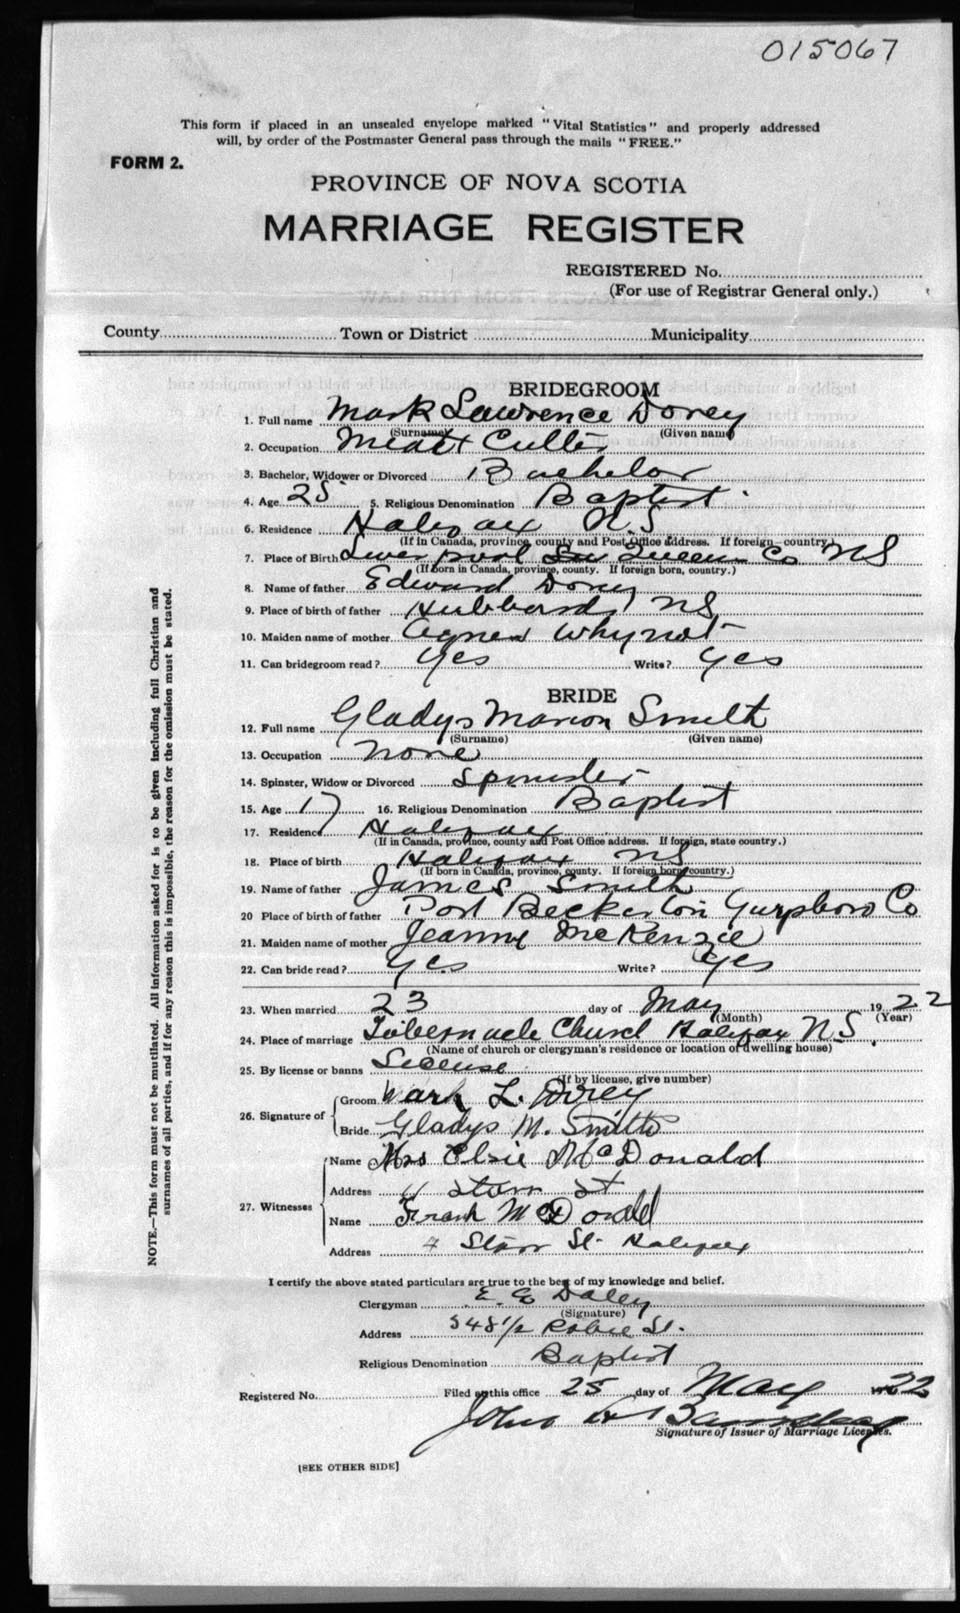 015067
This form if placed in an unsealed envelope marked "Vital Statistics" and properly addressed
will, by order of the Postmaster General pass through the mails "FREE."
FORM 2.
PROVINCE OF NOVA SCOTIA
MARRIAGE REGISTER
REGISTERED No.
(For use of Registrar General only.)
County Town or District Municipality
BRIDEGROOM
1. Full name Mark Lawrence Dorey
(Surname) (Given name)
2. Occupation Meat Cutter
3. Bachelor, Widower or Divorced Bachelor
4. Age 25 5. Religious Denomination Baptist
6. Residence Halifax N.S
(If in Canada, province, county and Post Office address. If foreign country.)
7. Place of Birth Liverpool Queens Co NS
(If born in Canada, province, county. If foreign born, country.)
8. Name of father Edward Dorey
9. Place of birth of father Hubbards NS
10. Maiden name of mother Agnes Whynot
11. Can bridegroom read? Yes Write? Yes
BRIDE
12. Full name Gladys Marion Smith
(Surname) (Given name)
13. Occupation none
14. Spinster, Widow or Divorced Spinster
15. Age 17 16. Religious Denomination Baptist
17. Residence Halifax
(If in Canada, province, county and Post Office address. If foreign, state country.)
18. Place of birth Halifax NS
(If born in Canada, province, county. If foreign born, country.)
19. Name of father James Smith
20 Place of birth of father Port Beckerton Guysboro Co
21. Maiden name of mother Jeanny McKenzie
22. Can bride read? Yes Write? Yes
23. When married 23 day of May 1922
(Month) (Year)
24. Place of marriage Tabernacle Church Halifax N.S.
(Name of church or clergyman's residence or location of dwelling house)
25. By license or banns License
(If by license, give number)
26. Signature of Groom Mark L. Dorey
Bride Gladys M. Smith
27. Witnesses Name Mrs Elsie McDonald
Address 4 Starr St
Name Frank McDonald
Address 4 Starr St. Halifax
I certify the above stated particulars are true to the best of my knowledge and belief.
Clergyman E. E Daley
(Signature)
Address 348 1/2 Robie St.
Religious Denomination Baptist
Registered No. Filed at this office 25 day of May 1922
John
Signature of Issuer of Marriage Licenses.
[SEE OTHER SIDE]
NOTE.—This form must not be mutilated. All information asked for is to be given including full Christian and
surnames of all parties, and if for any reason this is impossible, the reason for the omission must be stated.